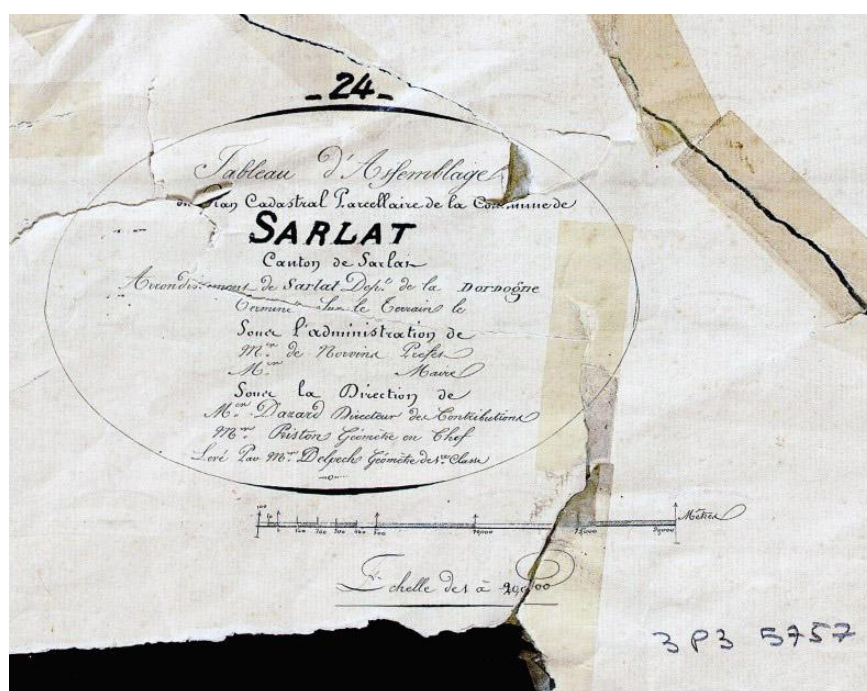 _24_
Tableau d'Assemblage
du Plan Cadastral Parcellaire de la Commune de
SARLAT
Canton de Sarlat
Arrondissement de Sarlat Dép.t de la Dordogne
Terminé Sur le Terrain le
Sous l'administration de
M.r de Norvins Préfet
M.r Maire
Sous la Direction de
M.r Dazard Directeur des Contributions
M.r Riston Géomètre en Chef
Levé Par M.r Delpech Géomètre de 1.re Classe
Mètres
Echelle de 1 à
3P3 5757